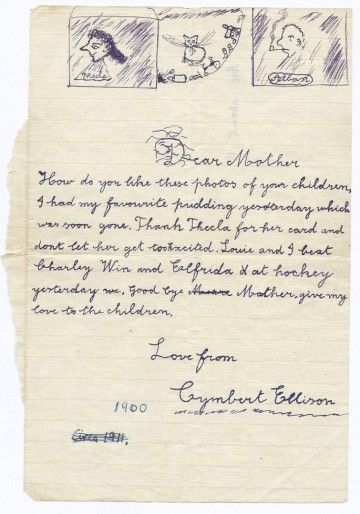 Alban
Dear Mother
How do you like these photos of your children,
I had my favourite pudding yesterday which
was soon gone. Thank Theela for her card and
dont let her get too excited. Louie and I beat
Charley Win and Elfrida at at hockey
yesterday we. Good bye Mother, give my
love to the children.
Love from
Cymbert Ellison
1900
Circa 1911.